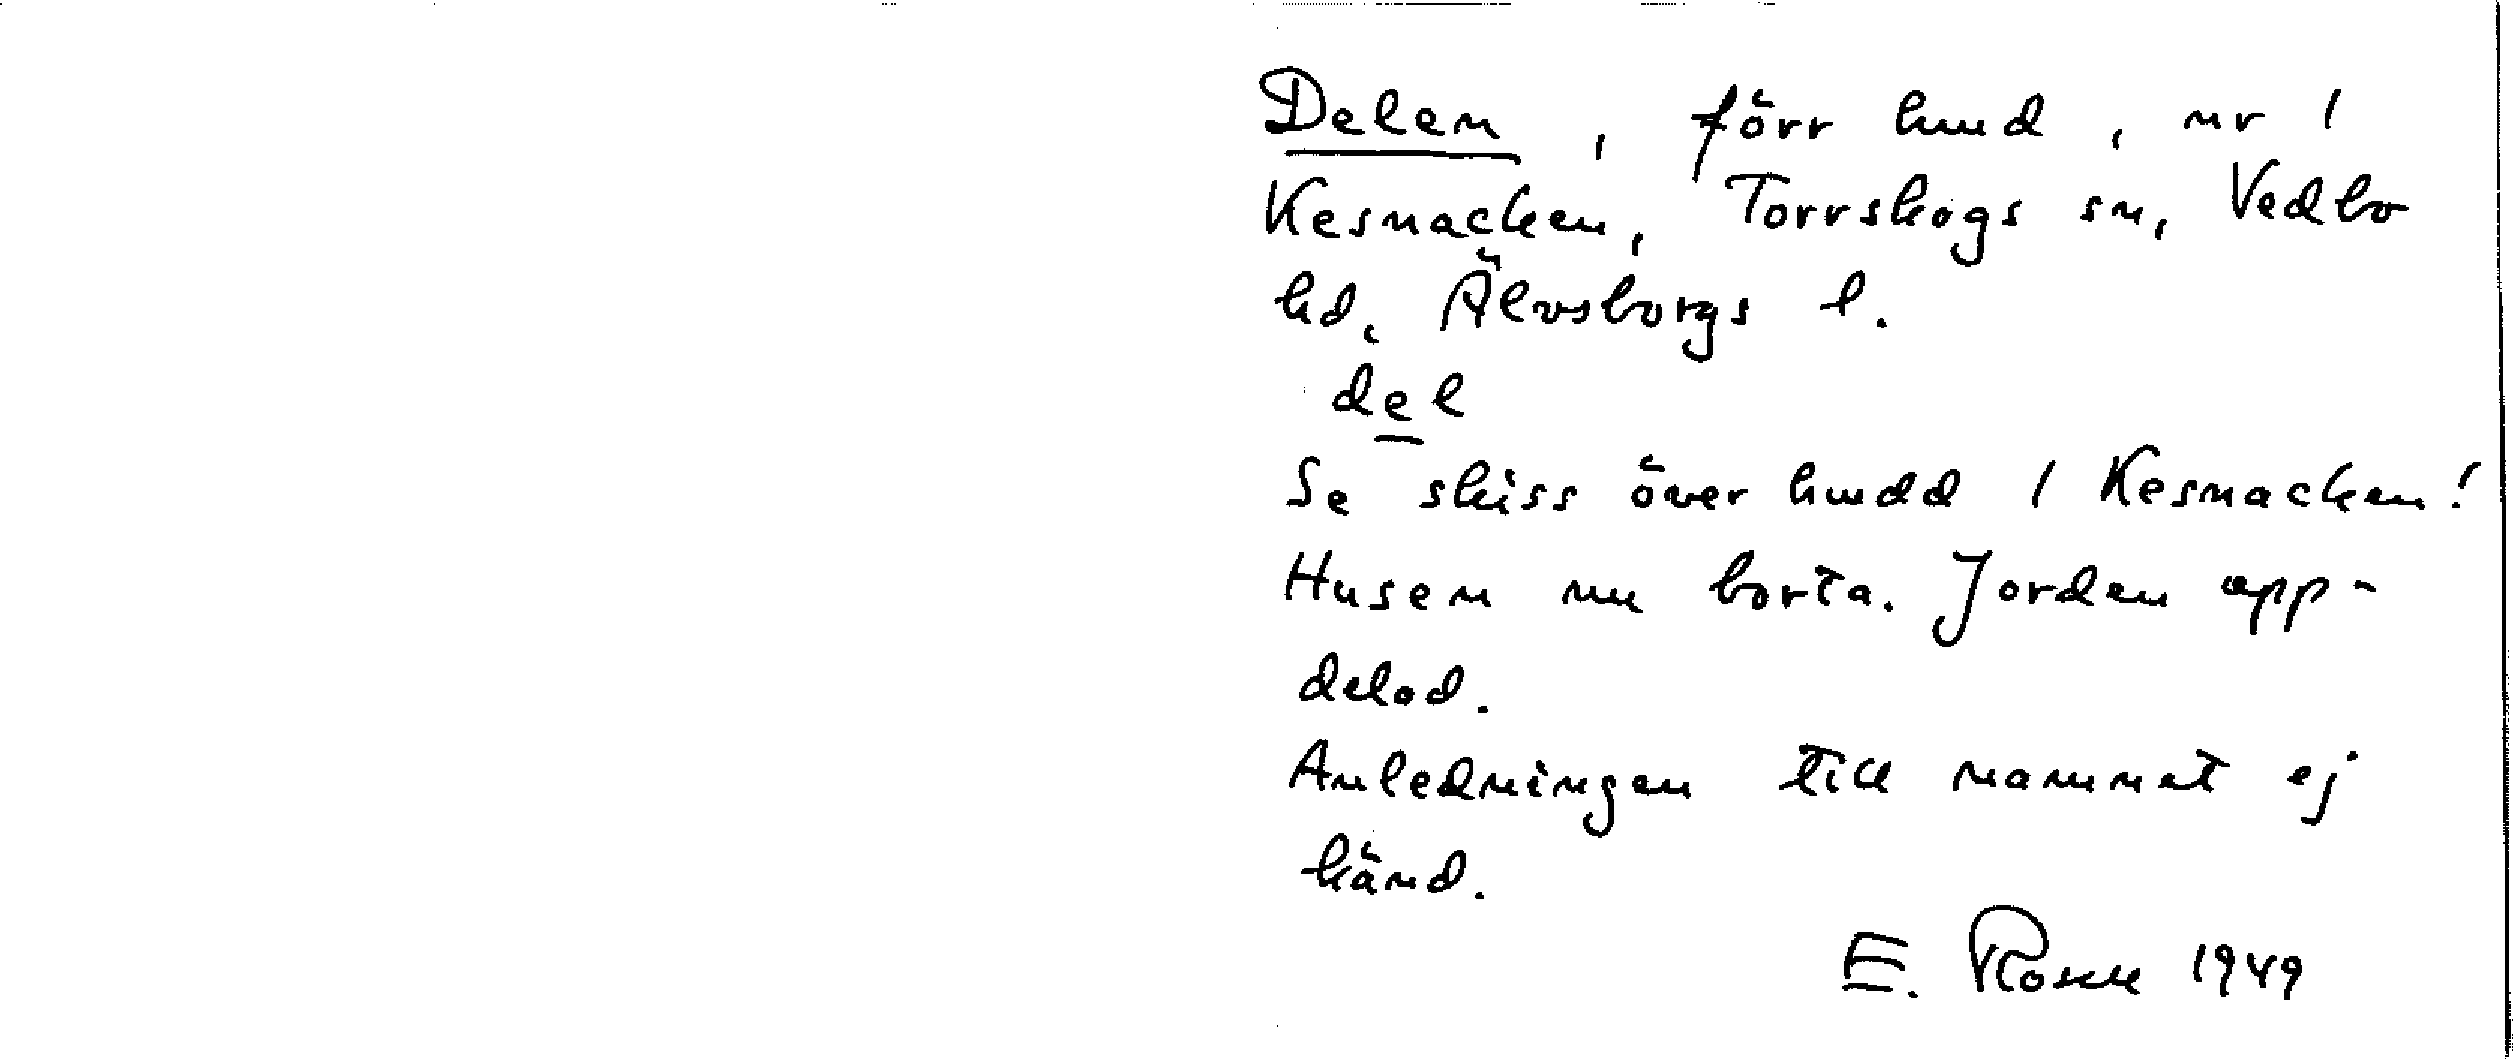 Delen, förr hmd, nr 1
Kesnacken, Torrskogs sn, Vedbo
hd, Älvsborgs l.
del
Se skiss över hmdd 1 Kesnacken!
Husen nu borta. Jorden upp-
delad.
Anledningen till namnet ej
känd.
E. 1949